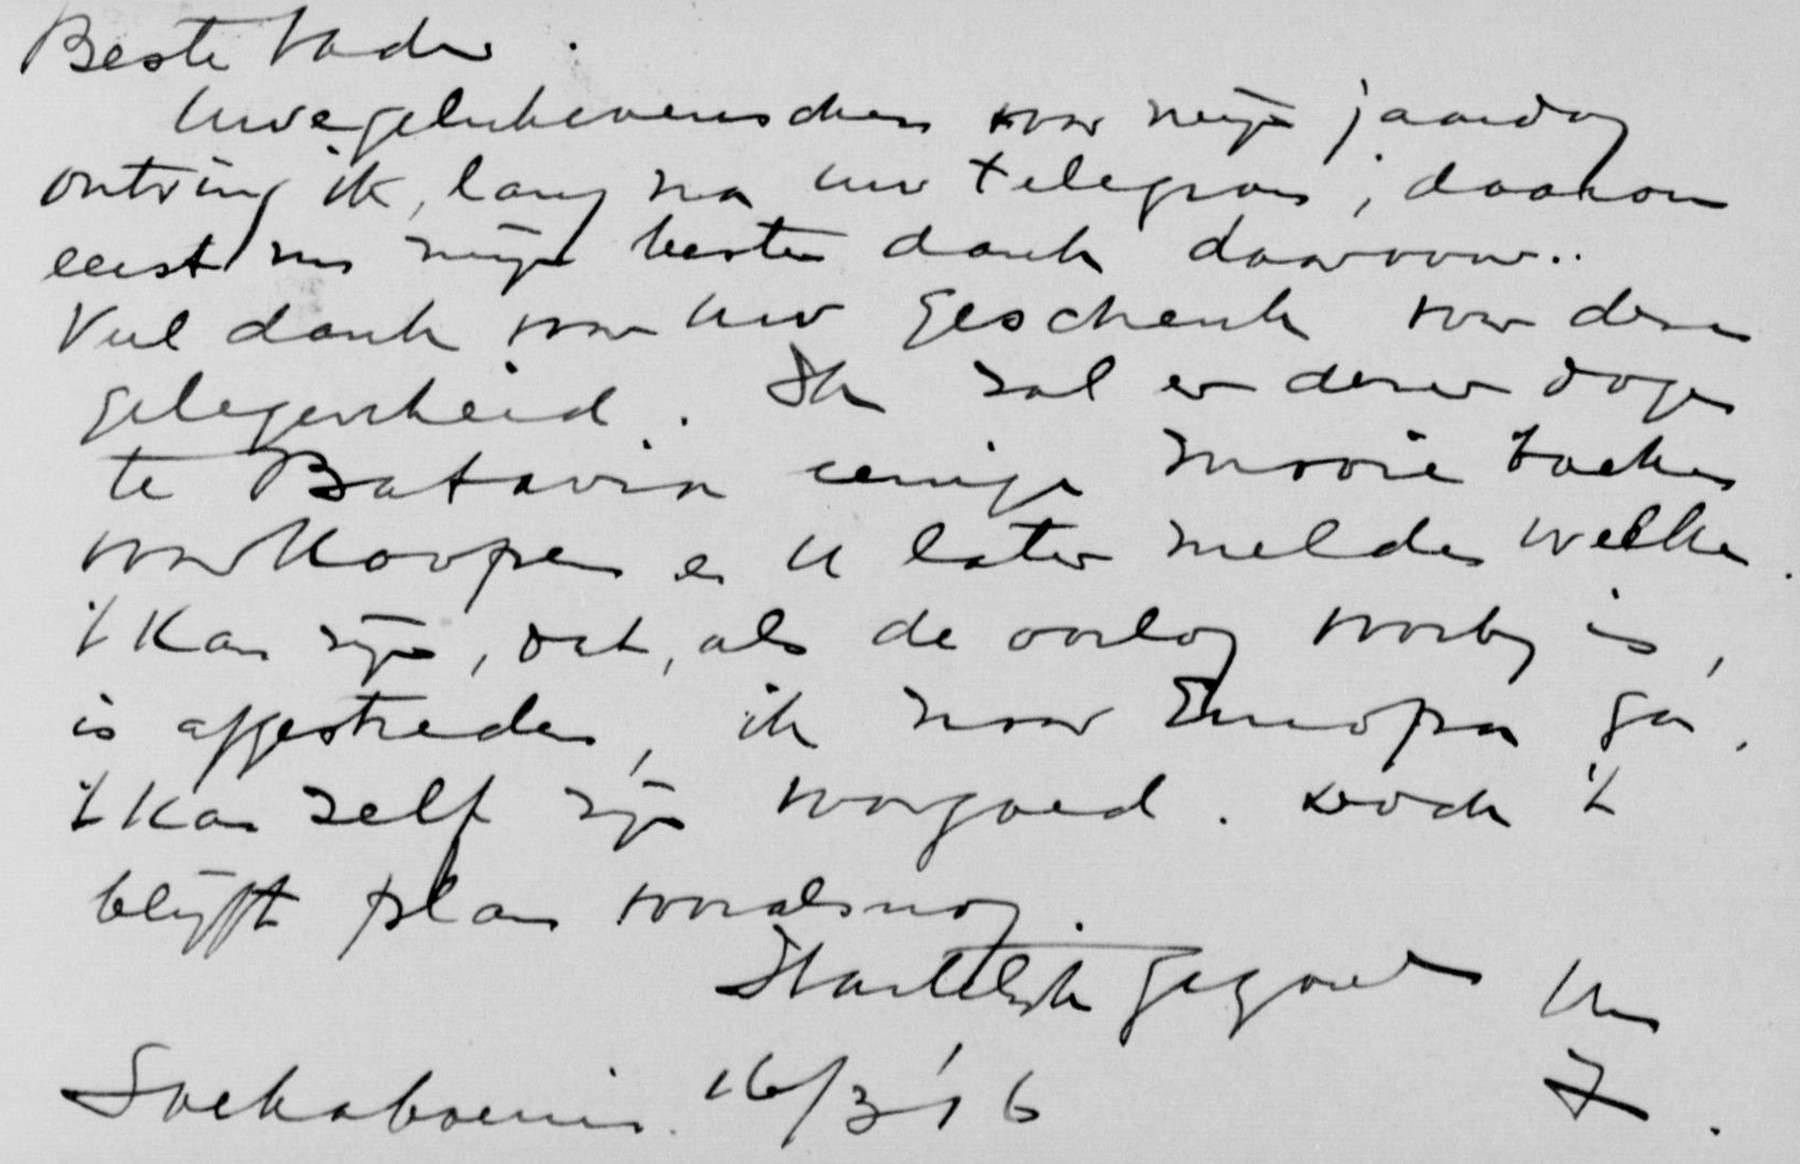 Beste Vader.
Uwe gelukwenschen voor mijn jaardag
ontving ik, lang na uw telegram; daarom
eerst nu mijn besten dank daarvoor..
Veel dank voor uw geschenk voor deze
gelegenheid. Ik zal er dezer dagen
te Batavia eenige mooie boeken
voor koopen en U later melden welke.
't kan zijn, dat, als de oorlog voorbij is,
is afgestreden, ik naar Europa ga.
't kan zelf zijn voorgoed. Doch 't
blijft plan vooralsnog.
Hartelijk gegroet Uw
Soekaboemi. 16/3 '16 J.